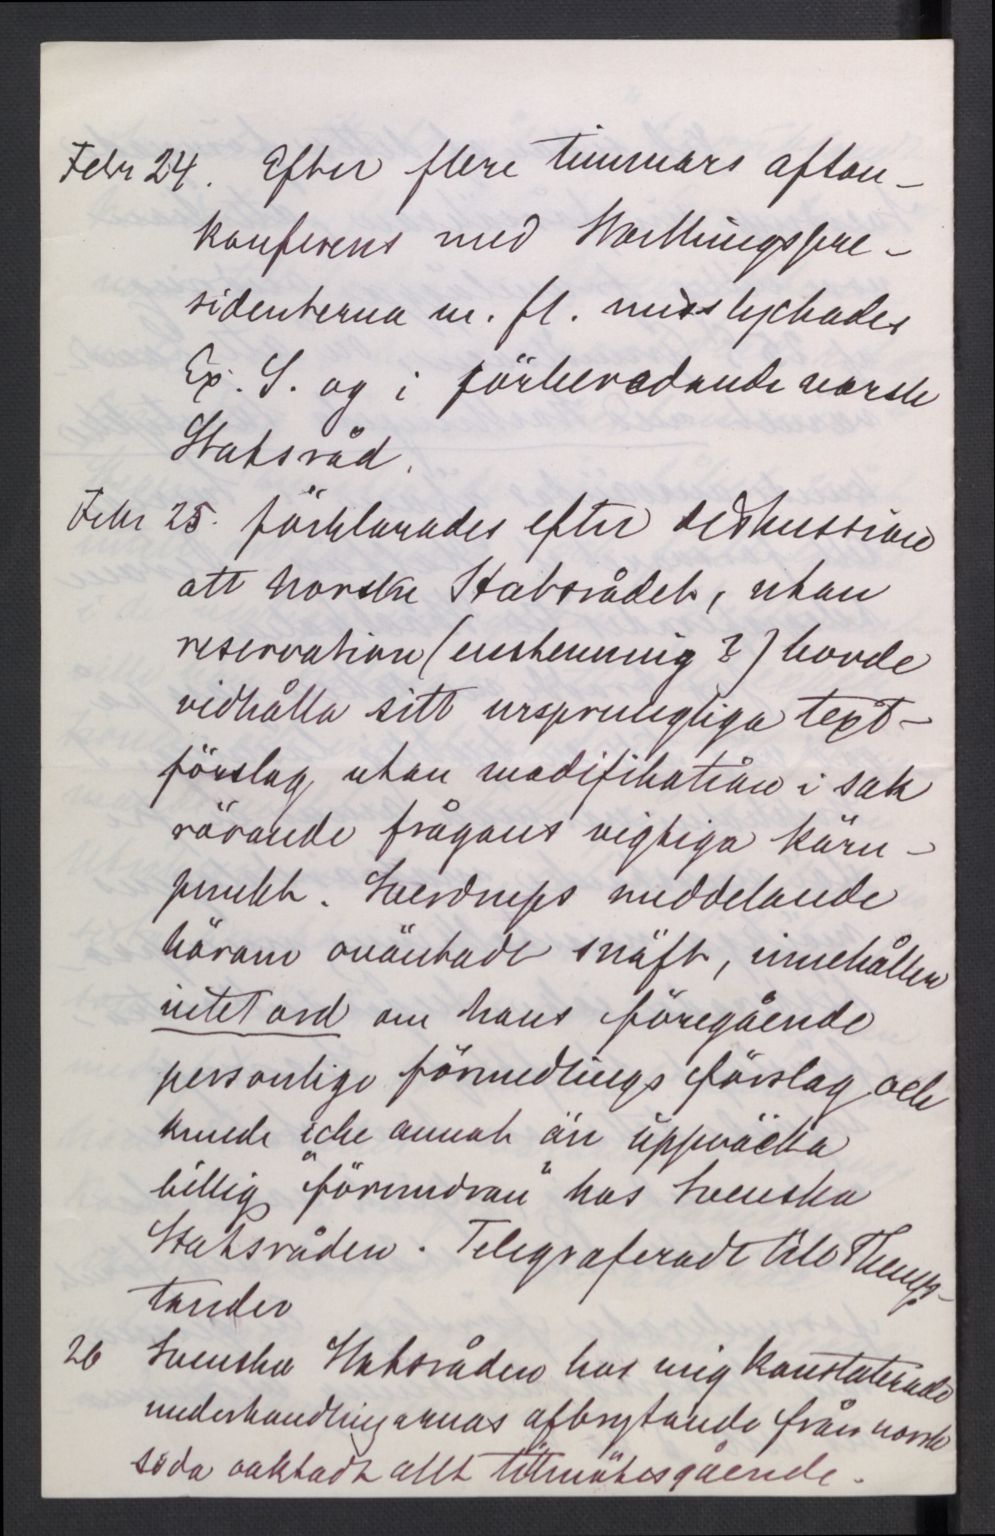 Febr 24. Efter flere timmars afton-
konferens med Storthingspre-
sidenterna m. fl. misslyckades
Ex. S. og i förberedande norsk
Statsråd.
Febr 25. förklarades efter diskussion
att norske Statsrådet, utan
reservation (enstemmig?) borde
vidhålla sitt ursprungliga text-
förslag utan modifikation i sak
rörande frågans vigtiga kärn-
punkt. Sverdrups meddelande
härom oväntadt snäft, innehållen
intet ord om hans föregående
personlige förmedlings förslag och
kunde icke annat än uppväcka
billig "förundran" hos Svenska
Statsråden. Telegraferadt till Themp-
tander
26 Svenska Statsråden hos mig konstaterade
underhandlingarnas afbrytande från norsk
sida oaktadt allt tillmötesgående.